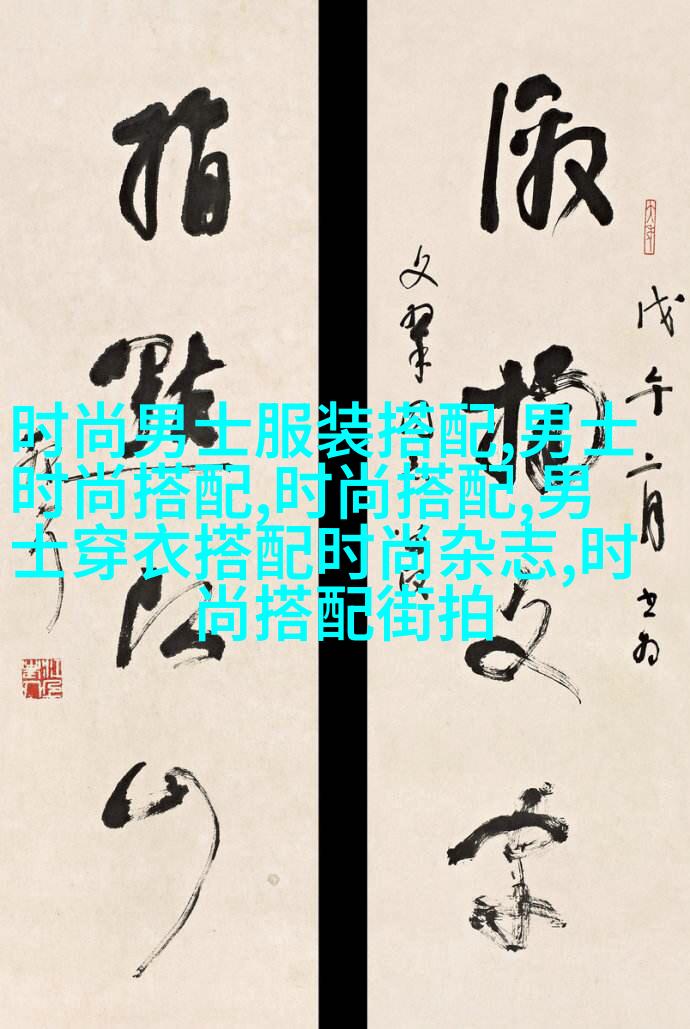 时尚男士服装搭配,男士
时尚搭配,时尚搭配,男
士穿衣搭配时尚杂志,时
尚搭配街拍
戊午二月书为
激扬文字
文翠同志
指點江山